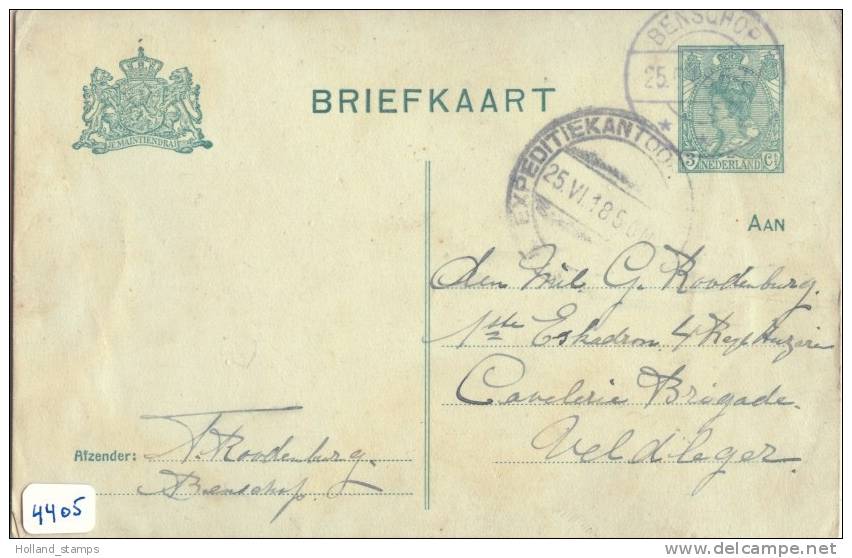 BENSCHOP
25.
JE MAINTIENDRAI
BRIEFKAART
3 Ct
NEDERLAND
EXPEDITIEKANTOOR
25.VI.18 5
AAN
den Mil. G. Roodenburg.
1ste Eskadron 4 Reg Huzaren
Cavelerie Brigade.
Veldleger.
Afzender: Roodenburg.
Benschop.
4405
Holland_stamps
http://www.delcampe.net